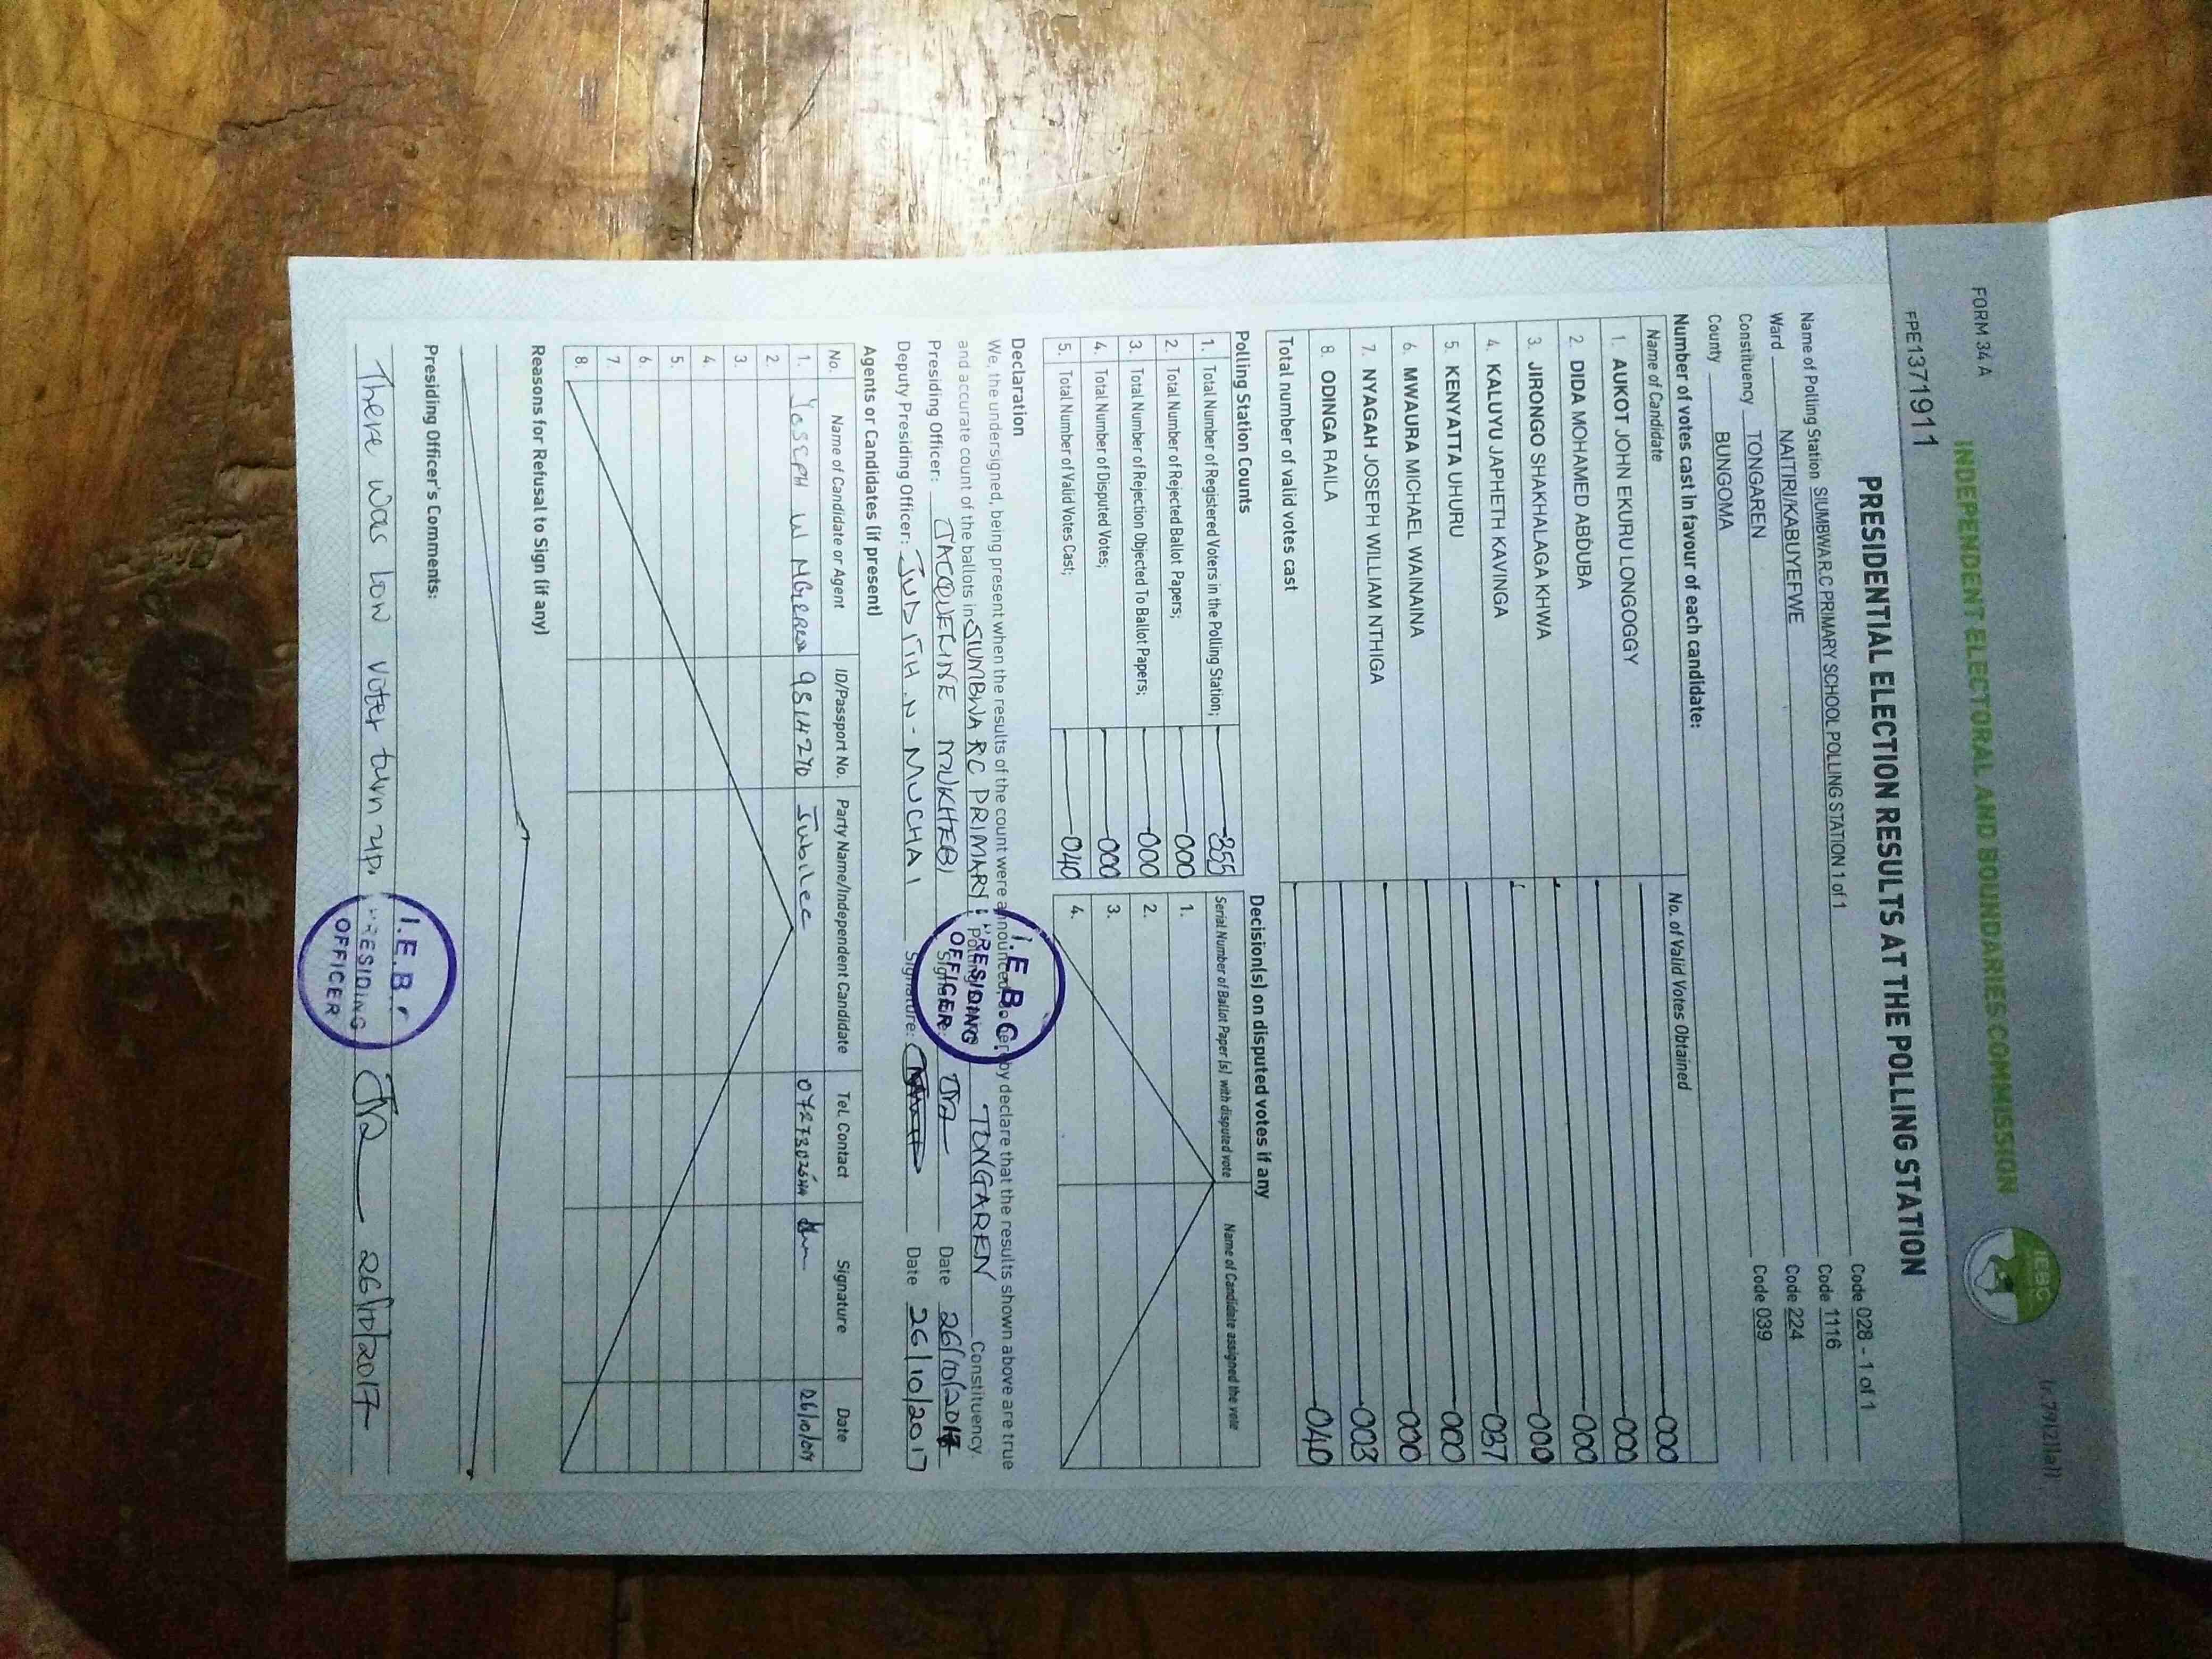 FORM 34 A
(r.79(2)(a))
INDEPENDENT ELECTORAL AND BOUNDARIES COMMISSION
IEBC
FPE1371911
PRESIDENTIAL ELECTION RESULTS AT THE POLLING STATION
Name of Polling Station SIUMBWA R.C PRIMARY SCHOOL POLLING STATION 1 of 1 Code 028 - 1 of 1
Ward NAITIRI/KABUYEFWE Code 1116
Constituency TONGAREN Code 224
County BUNGOMA Code 039
Number of votes cast in favour of each candidate:
Name of Candidate No. of Valid Votes Obtained
1. AUKOT JOHN EKURU LONGOGGY 000
2. DIDA MOHAMED ABDUBA 000
3. JIRONGO SHAKHALAGA KHWA 000
4. KALUYU JAPHETH KAVINGA 000
5. KENYATTA UHURU 037
6. MWAURA MICHAEL WAINAINA 000
7. NYAGAH JOSEPH WILLIAM NTHIGA 000
8. ODINGA RAILA 003
Total number of valid votes cast 040
Polling Station Counts
1. Total Number of Registered Voters in the Polling Station; 355
2. Total Number of Rejected Ballot Papers; 000
3. Total Number of Rejection Objected To Ballot Papers; 000
4. Total Number of Disputed Votes; 000
5. Total Number of Valid Votes Cast; 040
Decision(s) on disputed votes if any
Serial Number of Ballot Paper (s) with disputed vote Name of Candidate assigned the vote
1.
2.
3.
4.
Declaration
We, the undersigned, being present when the results of the count were announced, do hereby declare that the results shown above are true
and accurate count of the ballots in SIUMBWA RC PRIMARY Polling TONGAREN Constituency.
Presiding Officer: JACQUELINE MUKHEBI Signature: Date 26/10/2017
Deputy Presiding Officer: JUDITH .N - MUCHAI Signature: Date 26/10/2017
I.E.B.C.
PRESIDING
OFFICER
Agents or Candidates (if present)
No. Name of Candidate or Agent ID/Passport No. Party Name/Independent Candidate Tel. Contact Signature Date
1. JOSEPH W 9314270 Jubilee 26/10/017
2.
3.
4.
5.
6.
7.
8.
Reasons for Refusal to Sign (if any)
Presiding Officer's Comments:
There was low voter turn up. 26/10/2017
I.E.B.C
PRESIDING
OFFICER